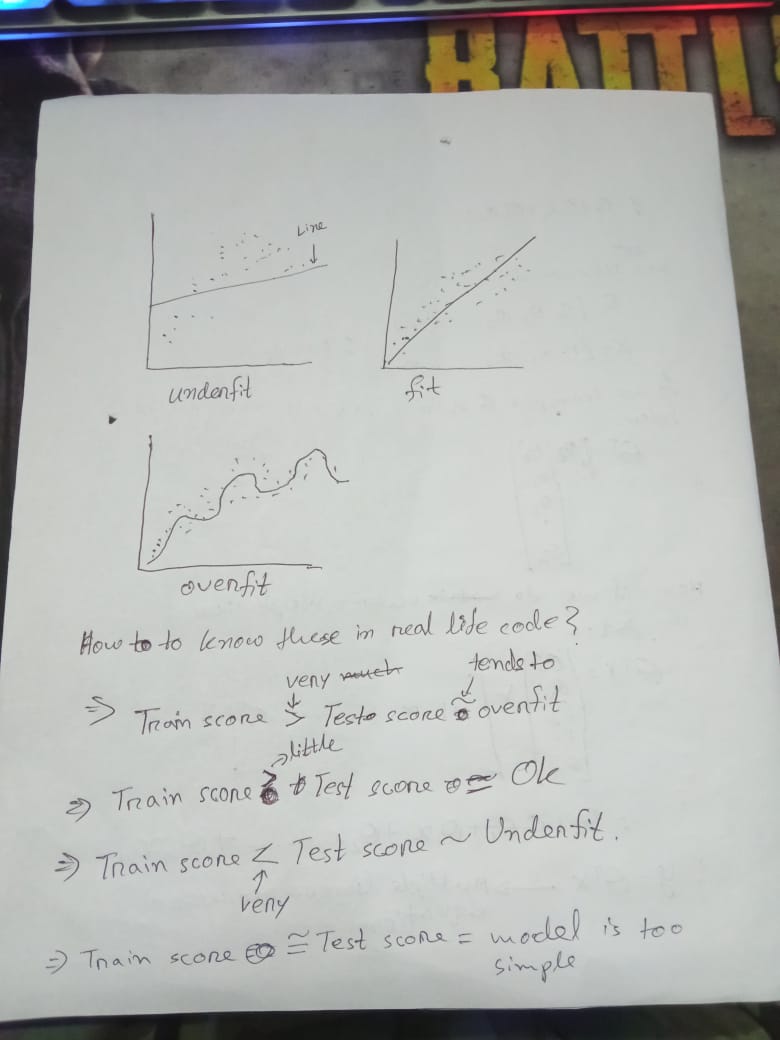 BATTL
Line
underfit
fit
overfit
How to to know these in real life code?
very much
tends to
⇒ Train score > Test score ≅ overfit
→ little
⇒ Train score > Test score = Ok
⇒ Train score < Test score ~ Underfit.
very
⇒ Train score ≅ Test score = model is too
simple